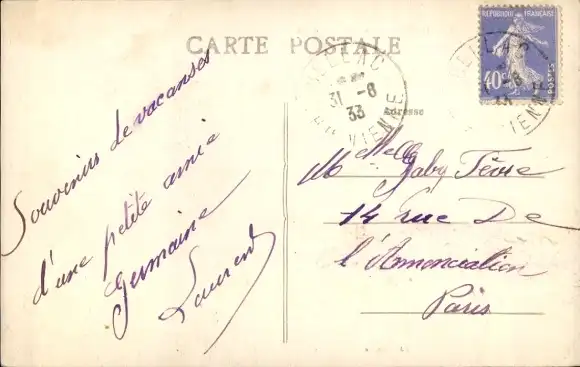 CARTE POSTALE
RÉPUBLIQUE FRANÇAISE
40c
BELLAC
31 -8
33
HTE VIENNE
Adresse
Souvenirs de vacanses
d'une petite amie
Germaine
Laurent
Melle Gaby
14 rue De
l'Annonciation
Paris